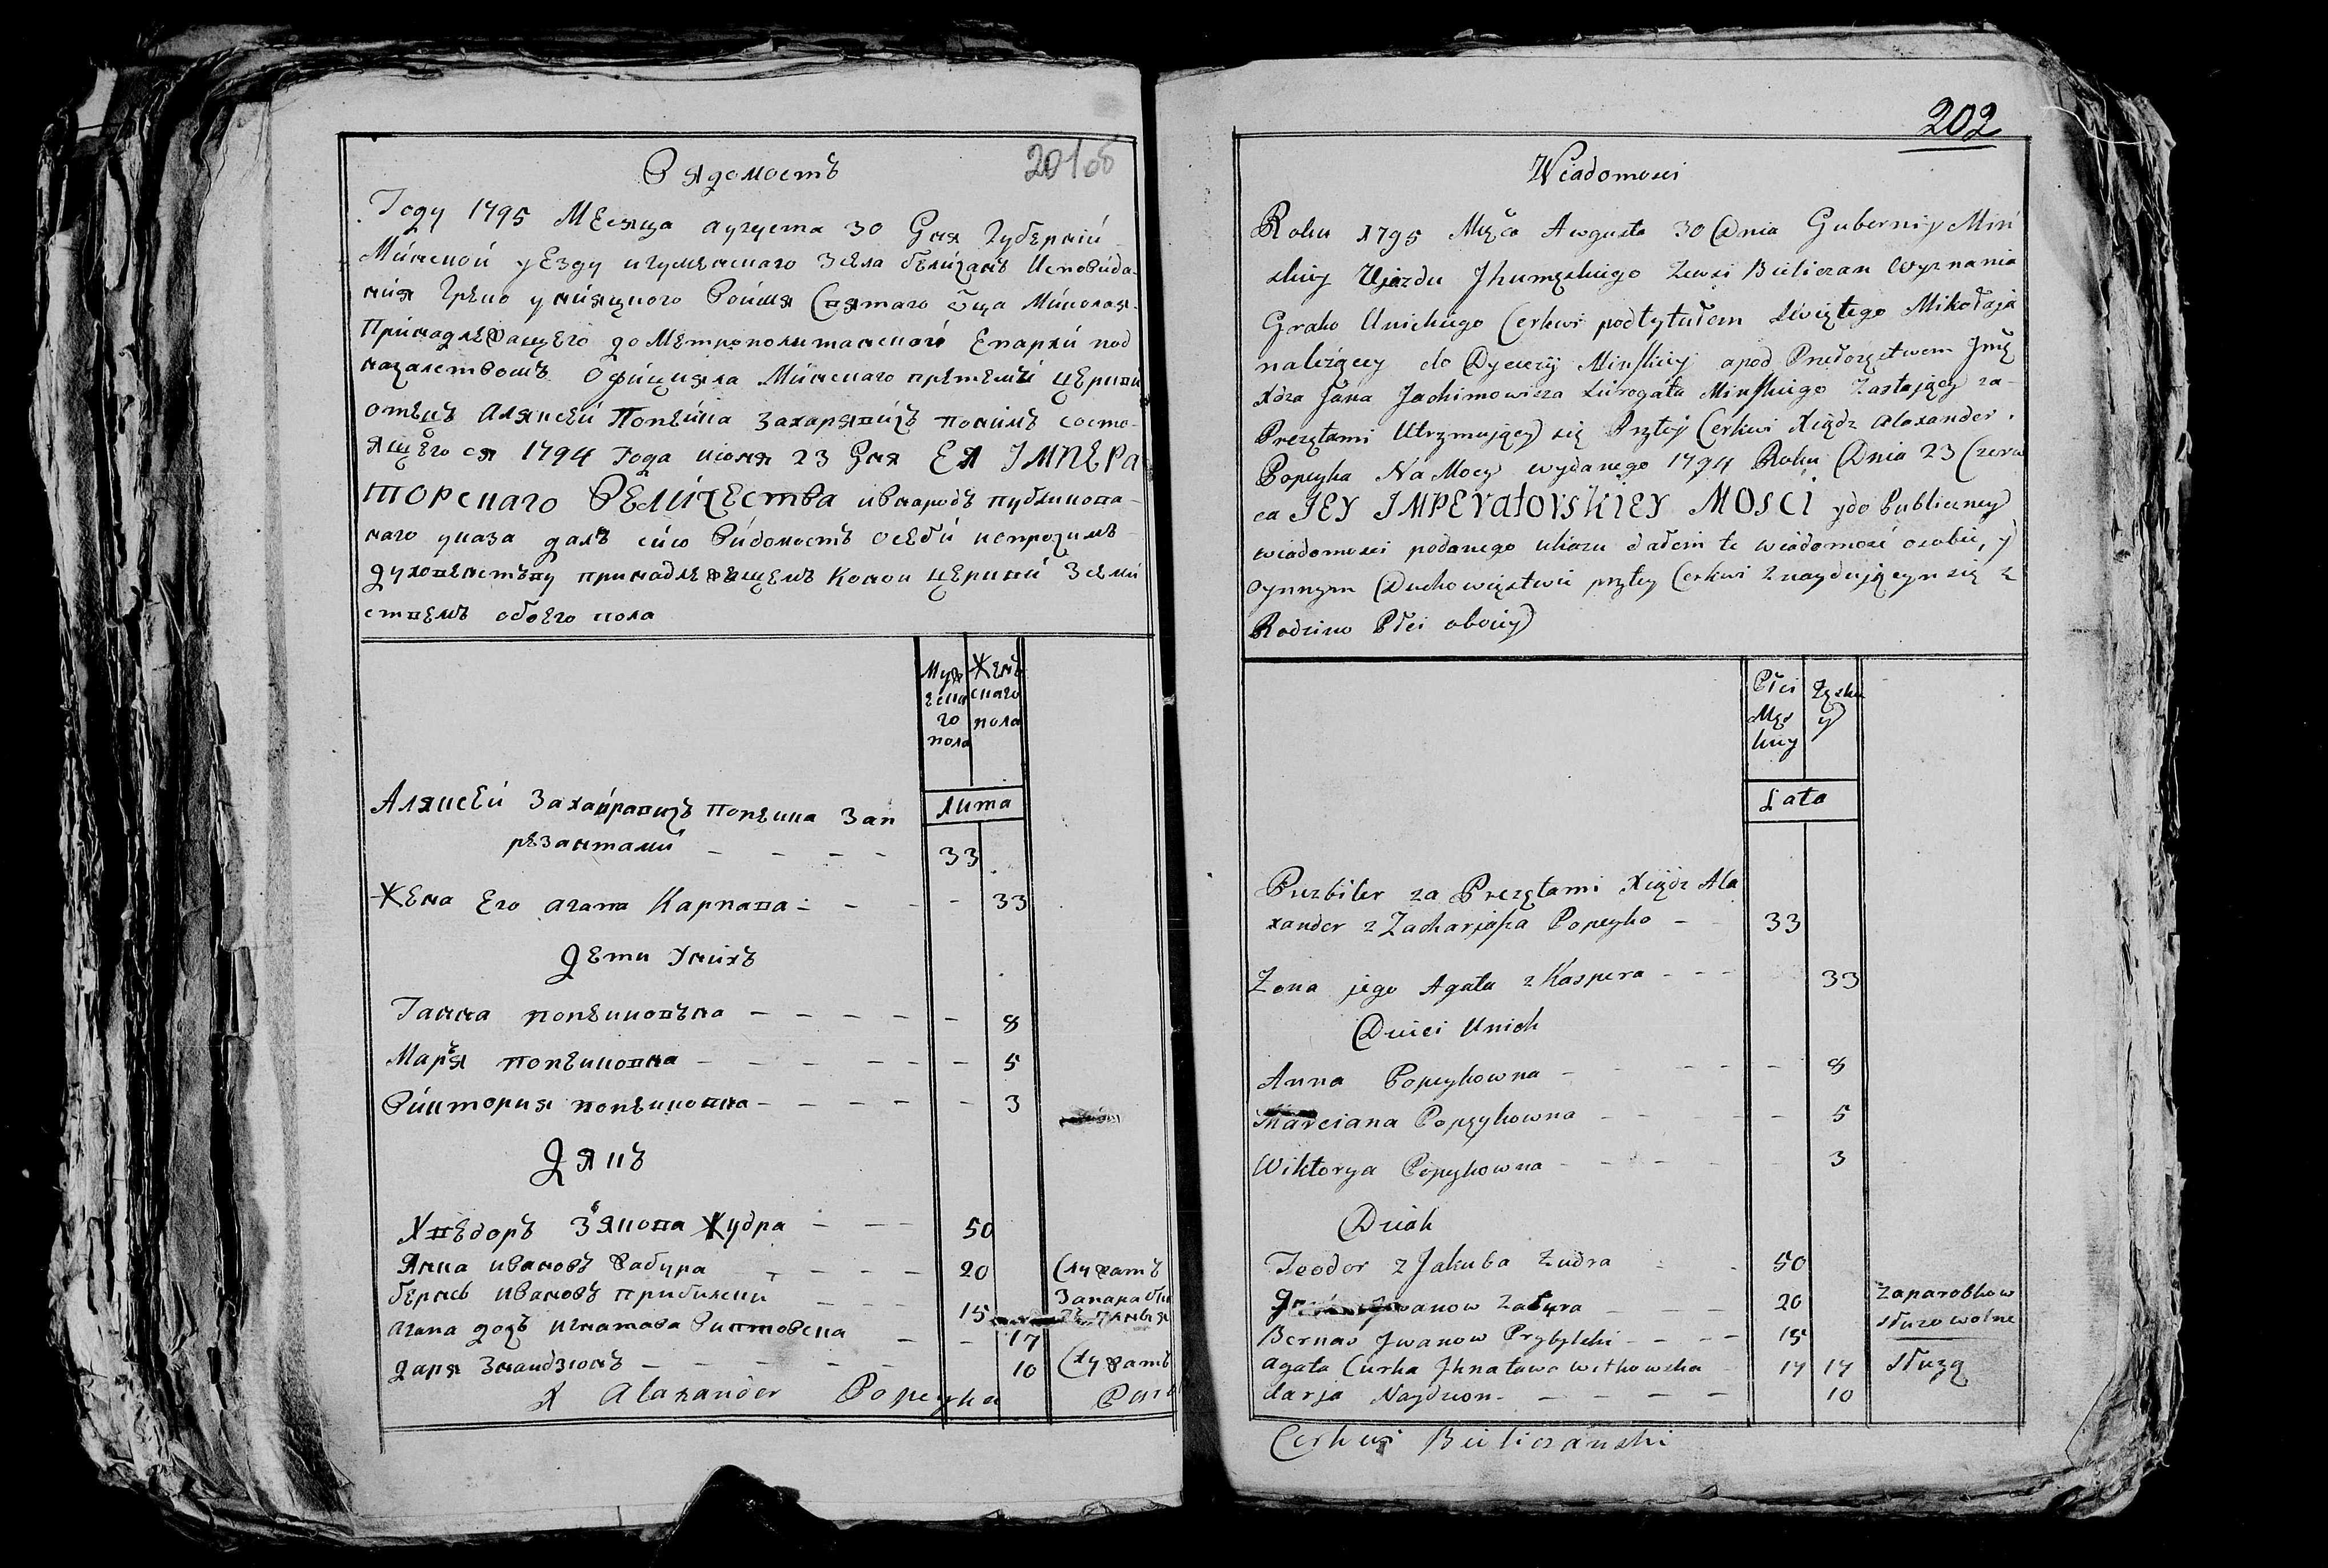 Вядомость
201об
Году 1795 Месяца августа 30 Дня Губерніи
Минской уезду игуменскаго Зсела беличанъ Исповида-
нія Греко уніяцкого Воимя Святаго оца Миколая
Принадлежащего до Метрополитанской Епархіи под
началством Офиціяла Минскаго претемъ церкви
отецъ Аляксей Попейка Захарявичъ по
ящего ся 1794 Года июня 23 Дня ЕЯ ІМПЕРА
торскаго ВЕЛИЧЕства ивнародъ публикова-
наго указа далъ сию Видомость осебы
духовенству принадлежащемъ Комои церкви Зсемы
ствемъ обоего пола
Муж Женъ
ска скаго
го пола
пола
Аляксей Захаравичъ Попейка Зап
резантами - - - - 33
Лита
Жена Его агата Карпава - - - 33
Дети Унихъ
Ганна попейковъна - - - - - 8
Марья попейковна - - - - - 5
Виктория попейковна - - - - - 3
Дякъ
Хведоръ Зьякова Жудра - - - 50
Янка ивановъ Жабура - - - - 20 Служатъ
бернсь ивановъ прибилски - - - 15 Запарабки
агапа дочъ игнатова Витовска - - 17
даря Знайдзюнъ - - - - - 10 Служатъ
X Alaxander Popeyka
202
Wiadomosci
Roku 1795 Męca Awgusta 30 Dnia Guberniy Miń
skiey Ujazdu Jhumęskiego Zewsi Bieliczan Wyznania
Greko Unickiego Cerkwi podtytułem Swiętego Mikołaja
należącey do Dyecezij Minskiey apod Przełożęstwem Jmę
Xdza Jana Jachimowicza Surogata Minskiego Zastający za-
Prezętami Utrzmujący się Przteÿ Cerkwi Xiądz Alaxander
Popeyka Na Mocy wydanego 1794 Roku Dnia 23 Czerw
ca JEY IMPEratorskiey MOSCi ydo Publiczney
wiadomosci podanego ukazu dałem te wiadomość osobie, y
oynnym Duchowięstwie przteÿ Cerkwi Znaydującym się z
Rodzino Płci oboiey
Płci Zęzkie
Męz y
kiey
Lata
Prezbiter za Prezętami Xiądz Ala
xander z Zacharjasza Popeyko - - 33
Zona jego Agata z Kaspera - - - 33
Dzieci Unich
Anna Popeykowna - - - - - 8
Marciana Popeykowna - - - - 5
Wiktorya Popeykowna - - - - 3
Dziak
Teodor z Jakuba Zudra - - 50
Jwanow Zabura - - - 20 Zaparobkow
Bernas Jwanow Prybylski - - - - 15 służo wolne
agata Curka Jhnatawa witkowska - 17 17 Służą
darja Naydzion - - - - - 10
Cerkwi Bieliczanski